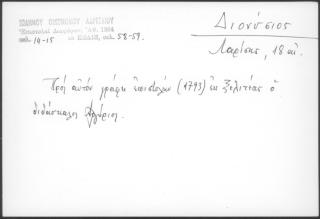 ΙΩΑΝΝΟΥ ΟΙΚΟΝΟΜΟΥ ΛΑΡΙΣΑΙΟΥ
Ἐπιστολαὶ Διαφόρων Ἀθ. 1964
σελ. 14-15 σελ. 58-59.
Διονύσιος
Λαρίσης, 18 αἰ.
Πρὸς αὐτὸν γράφει ἐπιστολὴν (1793) ἐκ Σελίτσας ὁ
διδάσκαλος Ἀργύριος.